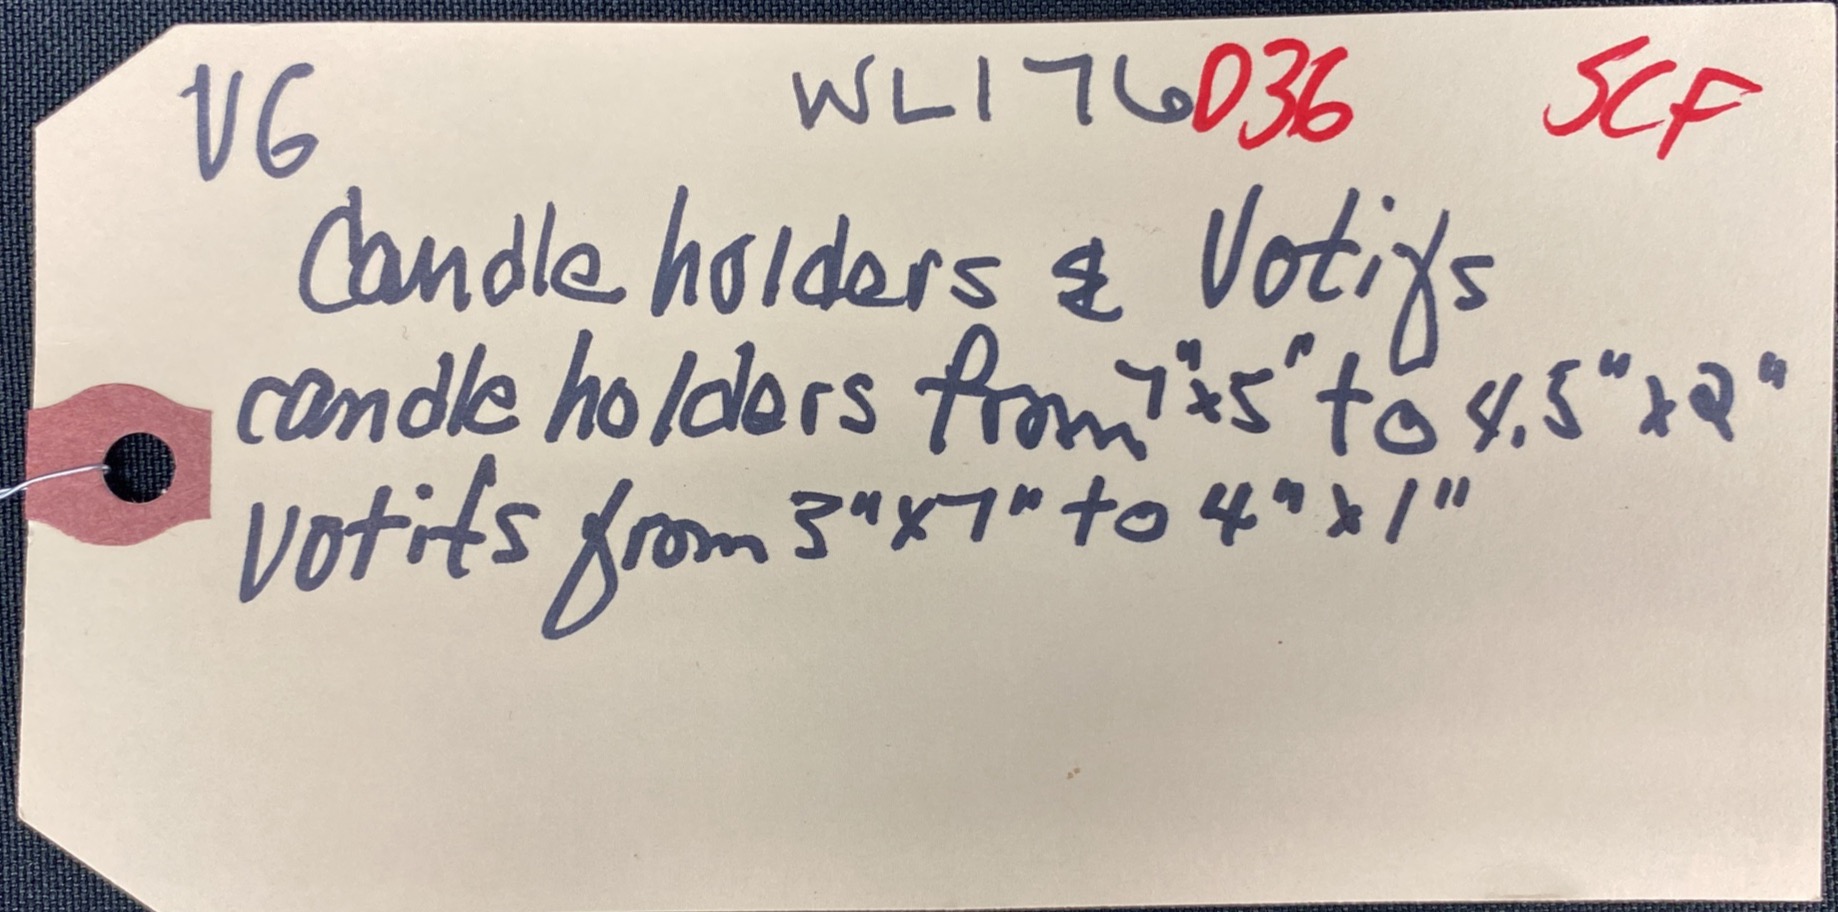 VG WL176 D36 SCF
Candle holders & Votifs
candle holders from 7"x5" to 4.5"x2"
Votifs from 3"x7" to 4"x1"